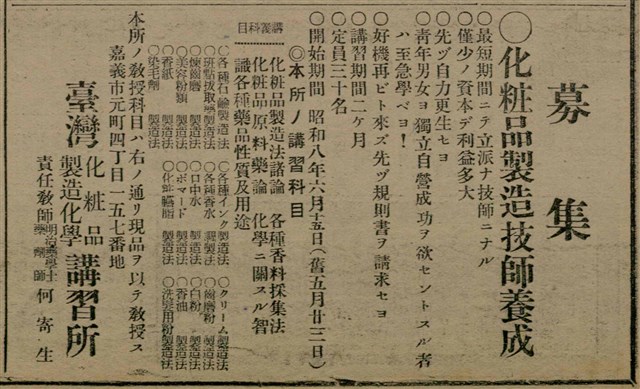 募集
○化粧品製造技師養成
○最短期間ニテ立派ナ技師ニナル
○僅少ノ資本デ利益多大
○先ヅ自力更生セヨ
○青年男女ヨ獨立自營成功ヲ欲セントスル者
ハ至急學ベヨ!
○好機再ビト來ズ先ヅ規則書ヲ請求セヨ
○講習期間二ケ月
○定員三十名
○開始期間 昭和八年六月十五日(舊五月廿三日)
◎本所ノ講習科目
講義科目
化粧品製造法諸論 各種香料採集法
化粧品原料藥論 化學ニ關スル智
識各種藥品性質及用途
○各種石鹼製造法 ○各種インク製造法 ○クリーム製造法
○班點拔取藥製造法 ○各種香水製造法 ○齒磨粉製造法
○煉齒磨製造法 ○口中水製造法 ○白粉製造法
○美容粉類製造法 ○ポマード製造法 ○香油製造法
○香紙製造法 ○化粧臙脂製造法 ○洗髮用粉製造法
○染毛劑製造法
本所ノ教授科目ハ右ノ通リ現品ヲ以テ教授ス
嘉義市元町四丁目一五七番地
臺灣化粧品製造化學講習所
責任教師 明治藥學士 藥劑師 何寄生